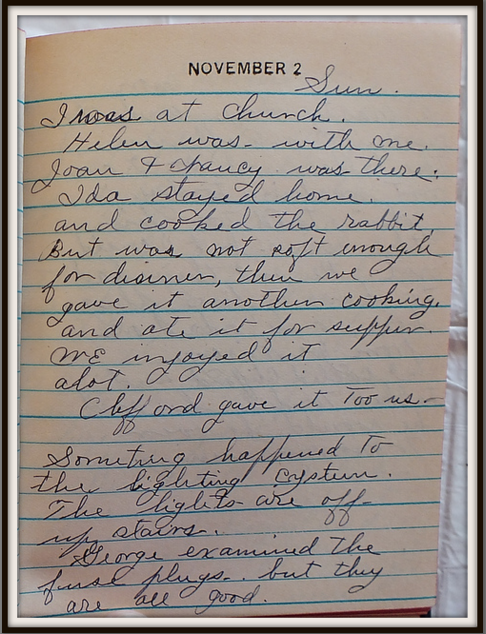 NOVEMBER 2
Sun.
I was at church.
Helen was with me.
Joan & Nancy was there.
Ida stayed home.
and cooked the rabbit.
But was not soft enough
for dinner, then we
gave it another cooking.
and ate it for supper.
We injoyed it
alot.
Clifford gave it Too us-
Someting happened To
the lighting system.
The lights are off-
up stairs.
George examined the
fuse plugs.. but they
are all good.